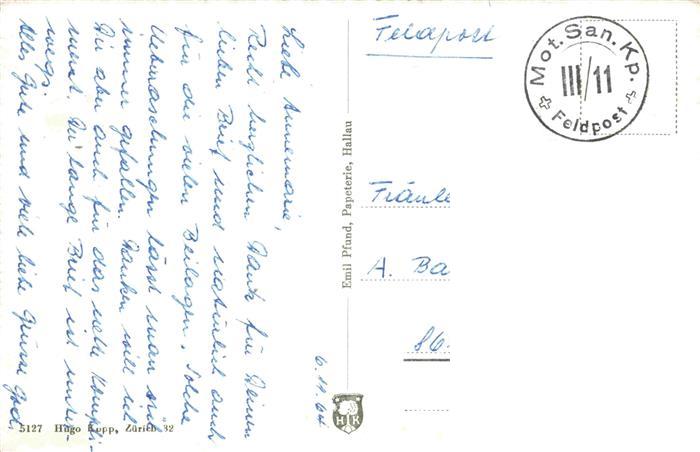 Liebe Annemarie,
Recht herzlichen Dank für Deinen
lieben Brief und natürlich auch
für die vielen Beilagen. Solche
Ueberraschungen lässt man sich
immer gefallen. Danken will ich
Dir aber auch für das nette Kompli-
ment. Der lange Brief ist unter-
wegs.
Alles Gute und viele liebe Grüsse
6.11.64
5127 Hugo Kopp, Zürich 32
Emil Pfund, Papeterie, Hallau
HK
Feldpost
Mot. San. Kp.
III/11
Feldpost
Fräule
A. Ba
86